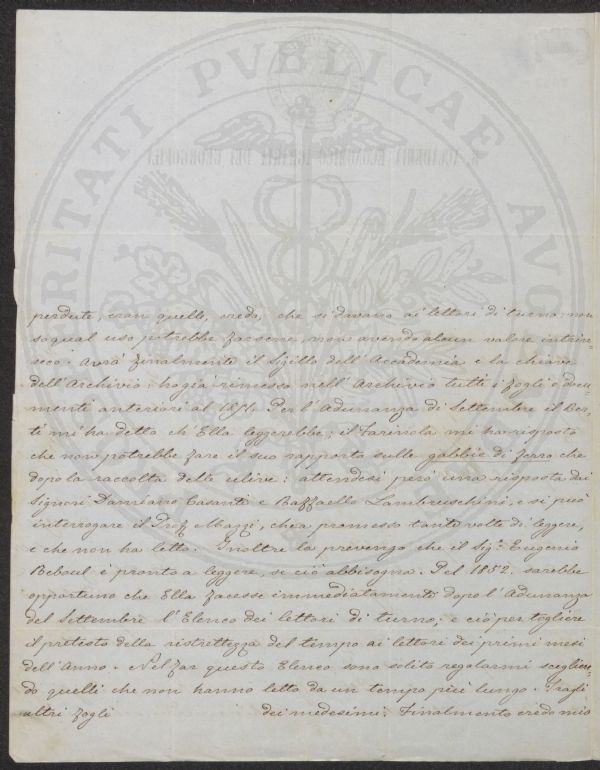 PROSPERITATI PVBLICAE AVGENDAE
R. ACCADEMIA ECONOMICO-AGRARIA DEI GEORGOFILI
perdute, eran quelle, credo, che si davano ai lettori di turno; non
so qual uso potrebbe farsene, non avendo alcun valore intrin=
seco. Avrà finalmente il Sigillo dell'Accademia e la chiave
dell'Archivio; ho già rimesso nell'Archivio tutti i fogli o docu=
menti anteriori al 1851. Per l'Adunanza di Settembre il Ber=
ti mi ha detto ch'Ella leggerebbe; il Farinola mi ha risposto
che non potrebbe fare il suo rapporto sulle gabbie di ferro che
dopo la raccolta delle ulive: attendesi però una risposta dai
Signori Damiano Casanti e Raffaello Lambruschini, e si può
interrogare il Prof. Mazzi, che a promesso tante volte di leggere,
e che non ha letto. Inoltre la prevengo che il Sig.r Eugenio
Reboul è pronto a leggere, se ciò abbisogna. Pel 1852. sarebbe
opportuno che Ella facesse immediatamente dopo l'Adunanza
del Settembre l'Elenco dei lettori di turno; e ciò per togliere
il pretesto della ristrettezza del tempo ai lettori dei primi mesi
dell'Anno. Nel far questo Elenco sono solito regolarmi sceglien=
do quelli che non hanno letto da un tempo più lungo. Fra gli
altri fogli dei medesimi. Finalmente credo mio